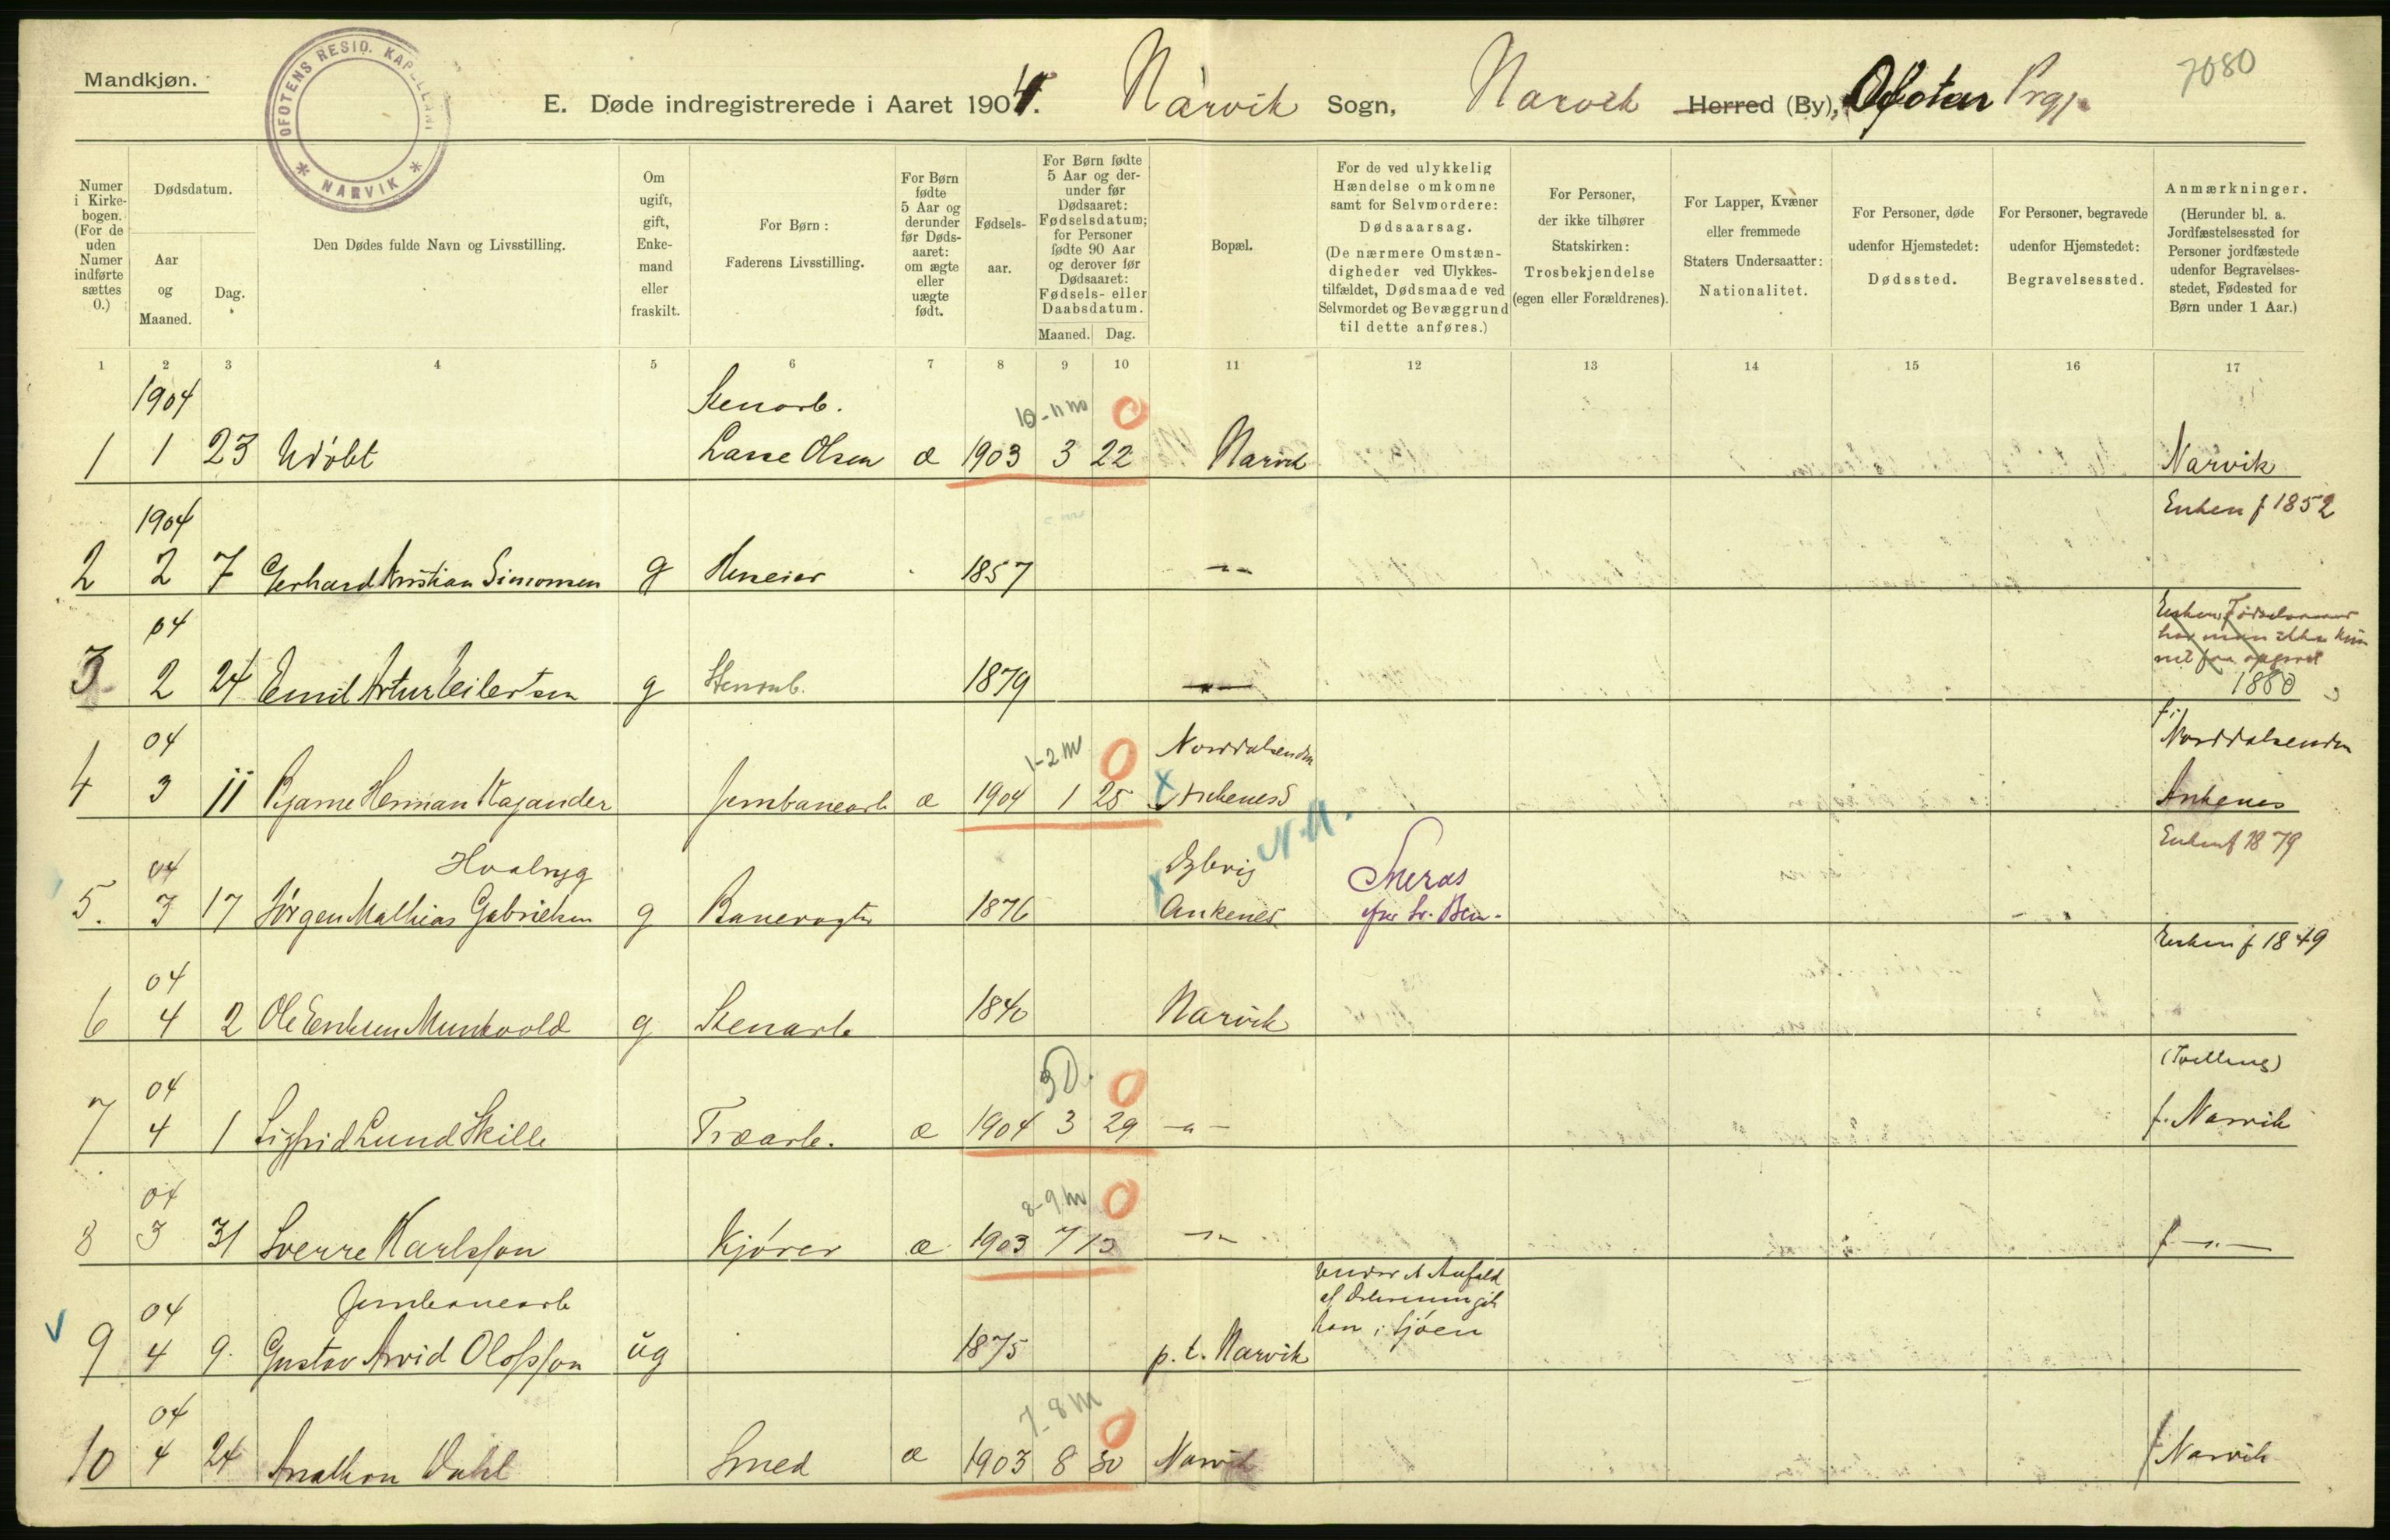 Mandkjøn.
OFOTENS RESID. KAPELLANI
* NARVIK *
E. Døde indregistrerede i Aaret 1904. Narvik Sogn, Narvik Herred (By), Ofoten Prgj.
7080
Numer i Kirkebogen. (For de uden Numer indførte sættes 0.)
Dødsdatum.
Aar og Maaned.
Dag.
Den Dødes fulde Navn og Livsstilling.
Om ugift, gift, Enkemand eller fraskilt.
For Børn: Faderens Livsstilling.
For Børn fødte 5 Aar og derunder før Dødsaaret: om ægte eller uægte født.
Fødselsaar.
For Børn fødte 5 Aar og derunder før Dødsaaret: Fødselsdatum; for Personer fødte 90 Aar og derover før Dødsaaret: Fødsels- eller Daabsdatum.
Maaned. Dag.
Bopæl.
For de ved ulykkelig Hændelse omkomne samt for Selvmordere: Dødsaarsag. (De nærmere Omstændigheder ved Ulykkestilfældet, Dødsmaade ved Selvmordet og Bevæggrund til dette anføres.)
For Personer, der ikke tilhører Statskirken: Trosbekjendelse (egen eller Forældrenes).
For Lapper, Kvæner eller fremmede Staters Undersaatter: Nationalitet.
For Personer, døde udenfor Hjemstedet: Dødssted.
For Personer, begravede udenfor Hjemstedet: Begravelsessted.
Anmærkninger. (Herunder bl. a. Jordfæstelsessted for Personer jordfæstede udenfor Begravelsesstedet, Fødested for Børn under 1 Aar.)
1 2 3 4 5 6 7 8 9 10 11 12 13 14 15 16 17
1904 Stenarb. 10-11 m 0
1 1 23 Udøbt Lasse Olsen æ 1903 3 22 Narvik Narvik
1904 Enken f 1852
2 2 7 Gerhard Kristian Simonsen g Huseier 1857 -"-
04 Enkens Fødselsaar
har man ikke kun
net faa opgivet
3 2 24 Emil Artur Eilertsen g Stenarb. 1879 -"- 1880
04 1-2 m 0 Norddalsenden f. Norddalsenden
4 3 11 Bjarne Herman Kajander Jernbanearb æ 1904 1 25 x Ankenes Ankenes
N.A.
04 Hvalryg Enken f 1879
5. 3 17 Jørgen Mathias Gabrielsen g Banevogter 1876 x Ankenes
Enken f 1849
04
6 4 2 Ole Eriksen Munkvold g Stenarb 1840 Narvik
04 3 D. 0 (Tvilling)
7 4 1 Sigfrid Lund Skille Træarb. æ 1904 3 29 -"- f. Narvik
04 8-9 m 0
8 3 31 Sverre Karlsson Kjører æ 1903 7 13 -"- f -"-
04 Jernbanearb han i Sjøen
9 4 9. Gustav Arvid Olofsson ug 1875 p. t. Narvik
04 7-8 m 0
10 4 24 Anathon Dahl Smed æ 1903 8 30 Narvik f Narvik